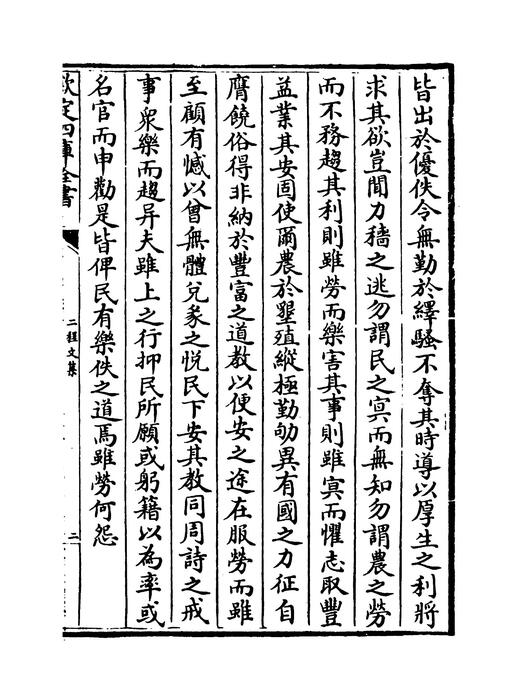 皆出於優佚令無勤於繹騷不奪其時導以厚生之利將
求其欲豈聞力穡之逃勿謂民之冥而無知勿謂農之勞
而不務趨其利則雖勞而樂害其事則雖冥而懼志取豐
益業其安固使爾農於墾殖縱極勤劬異有國之力征自
膺饒俗得非納於豐富之道教以便安之途在服勞而雖
至顧有憾以曾無體兊彖之悦民下安其教同周詩之戒
事衆樂而趨昇夫雖上之行抑民所願或躬籍以為率或
名官而申勸是皆俾民有樂佚之道焉雖勞何怨
欽定四庫全書
二程文集
二